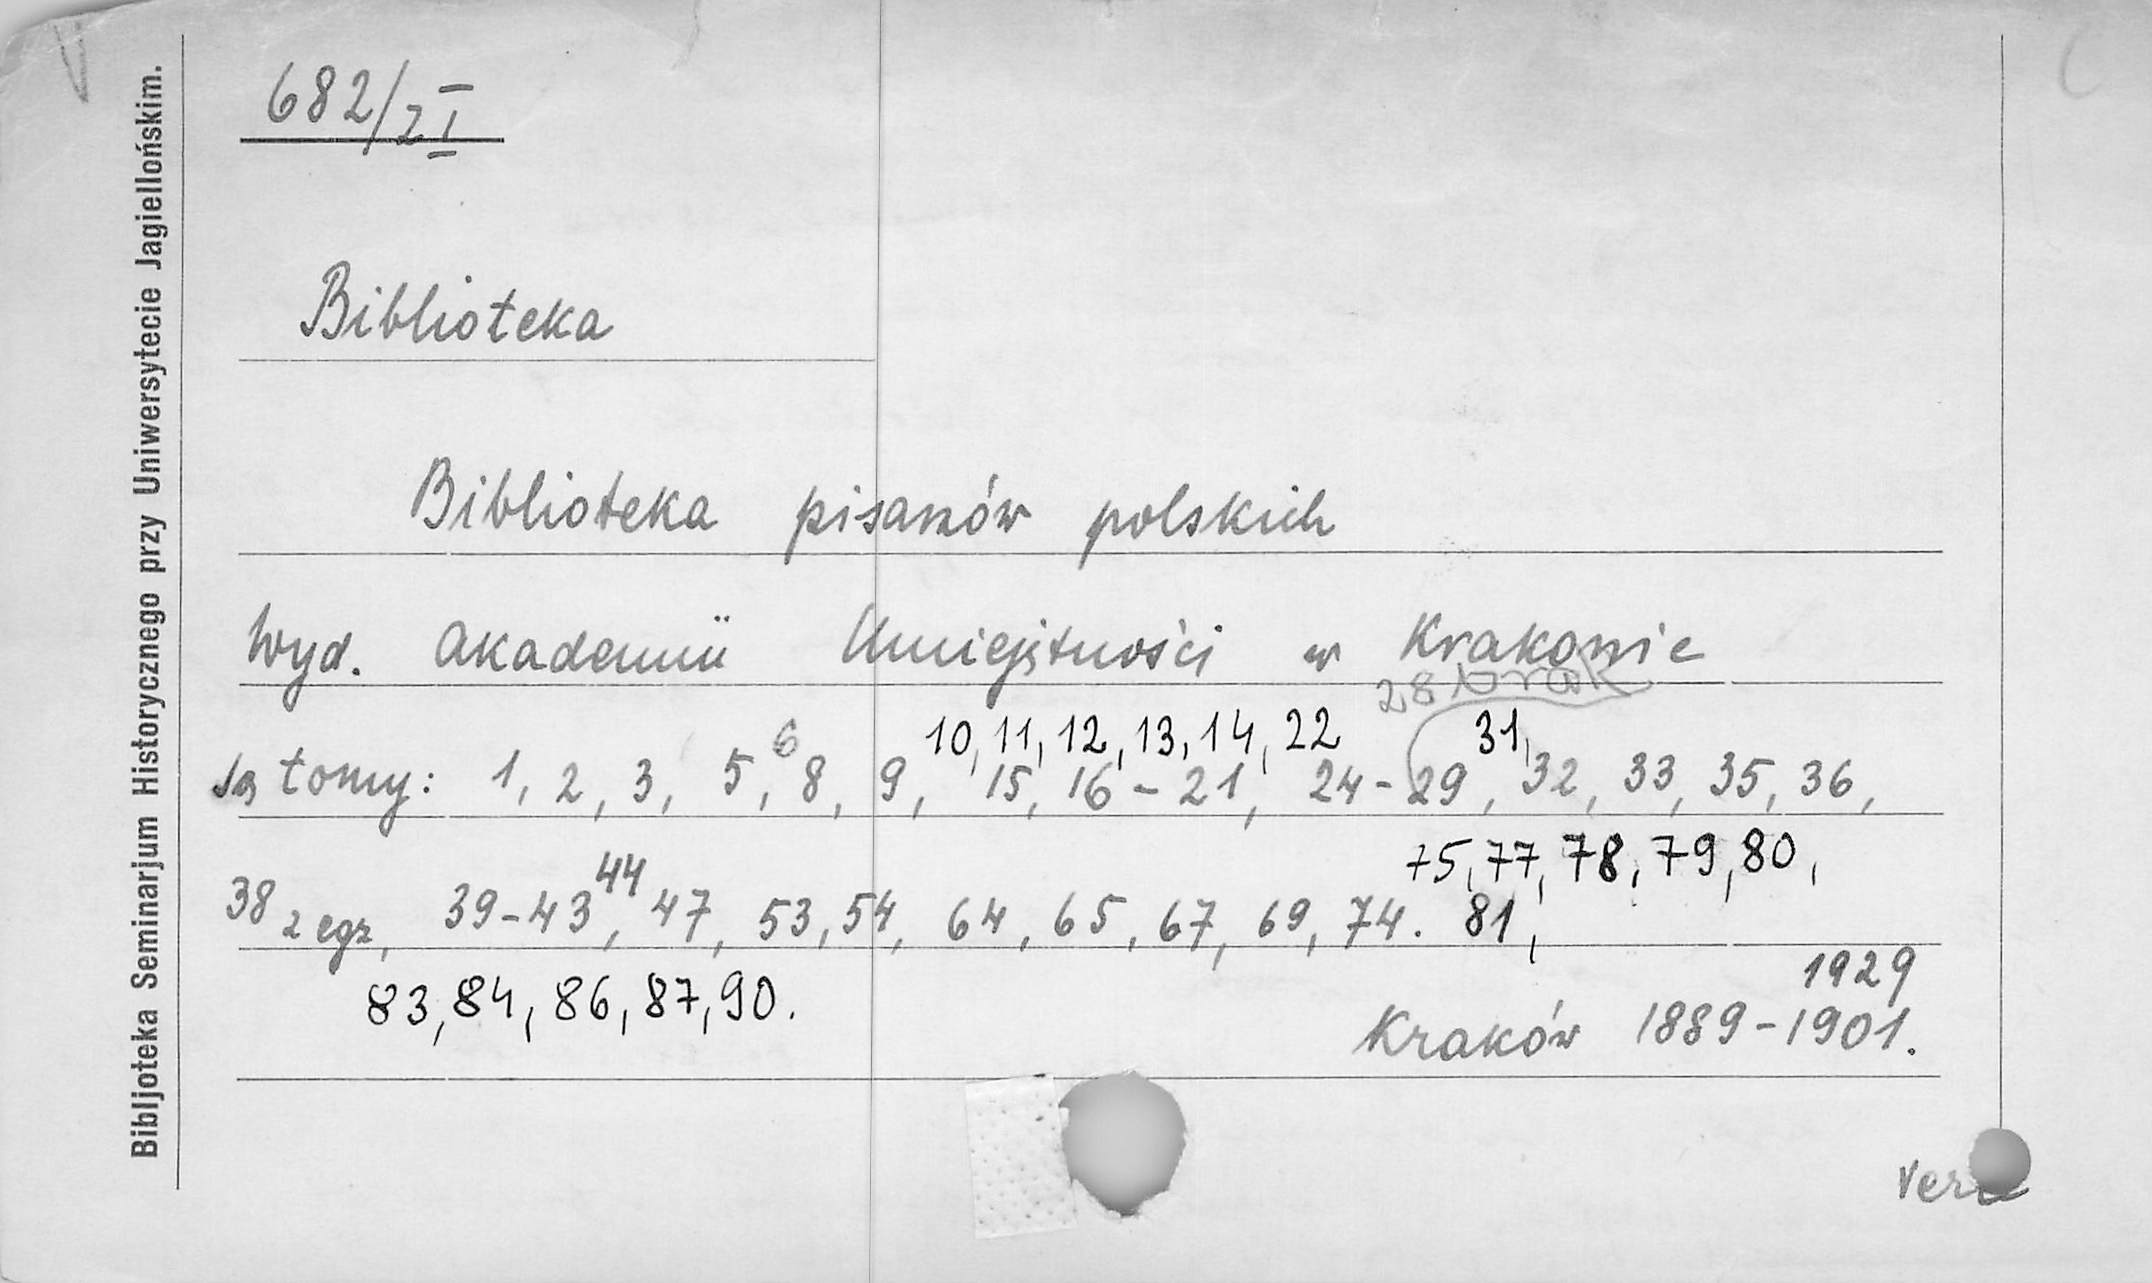 Bibljoteka Seminarjum Historycznego przy Uniwersytecie Jagiellońskim.
682/z I
Biblioteka
Biblioteka pisarzów polskich
Wyd. Akademii Umiejętności w Krakowie
28 brak
10, 11, 12, 13, 14, 22 31,
są tomy: 1, 2, 3, 5, 6 8, 9, 15, 16-21, 24-29, 32, 33, 35, 36,
75, 77, 78, 79, 80,
38 2 egz, 39-43, 44 47, 53, 54, 64, 65, 67, 69, 74. 81,
83, 84, 86, 87, 90.
1929
Kraków 1889-1901.